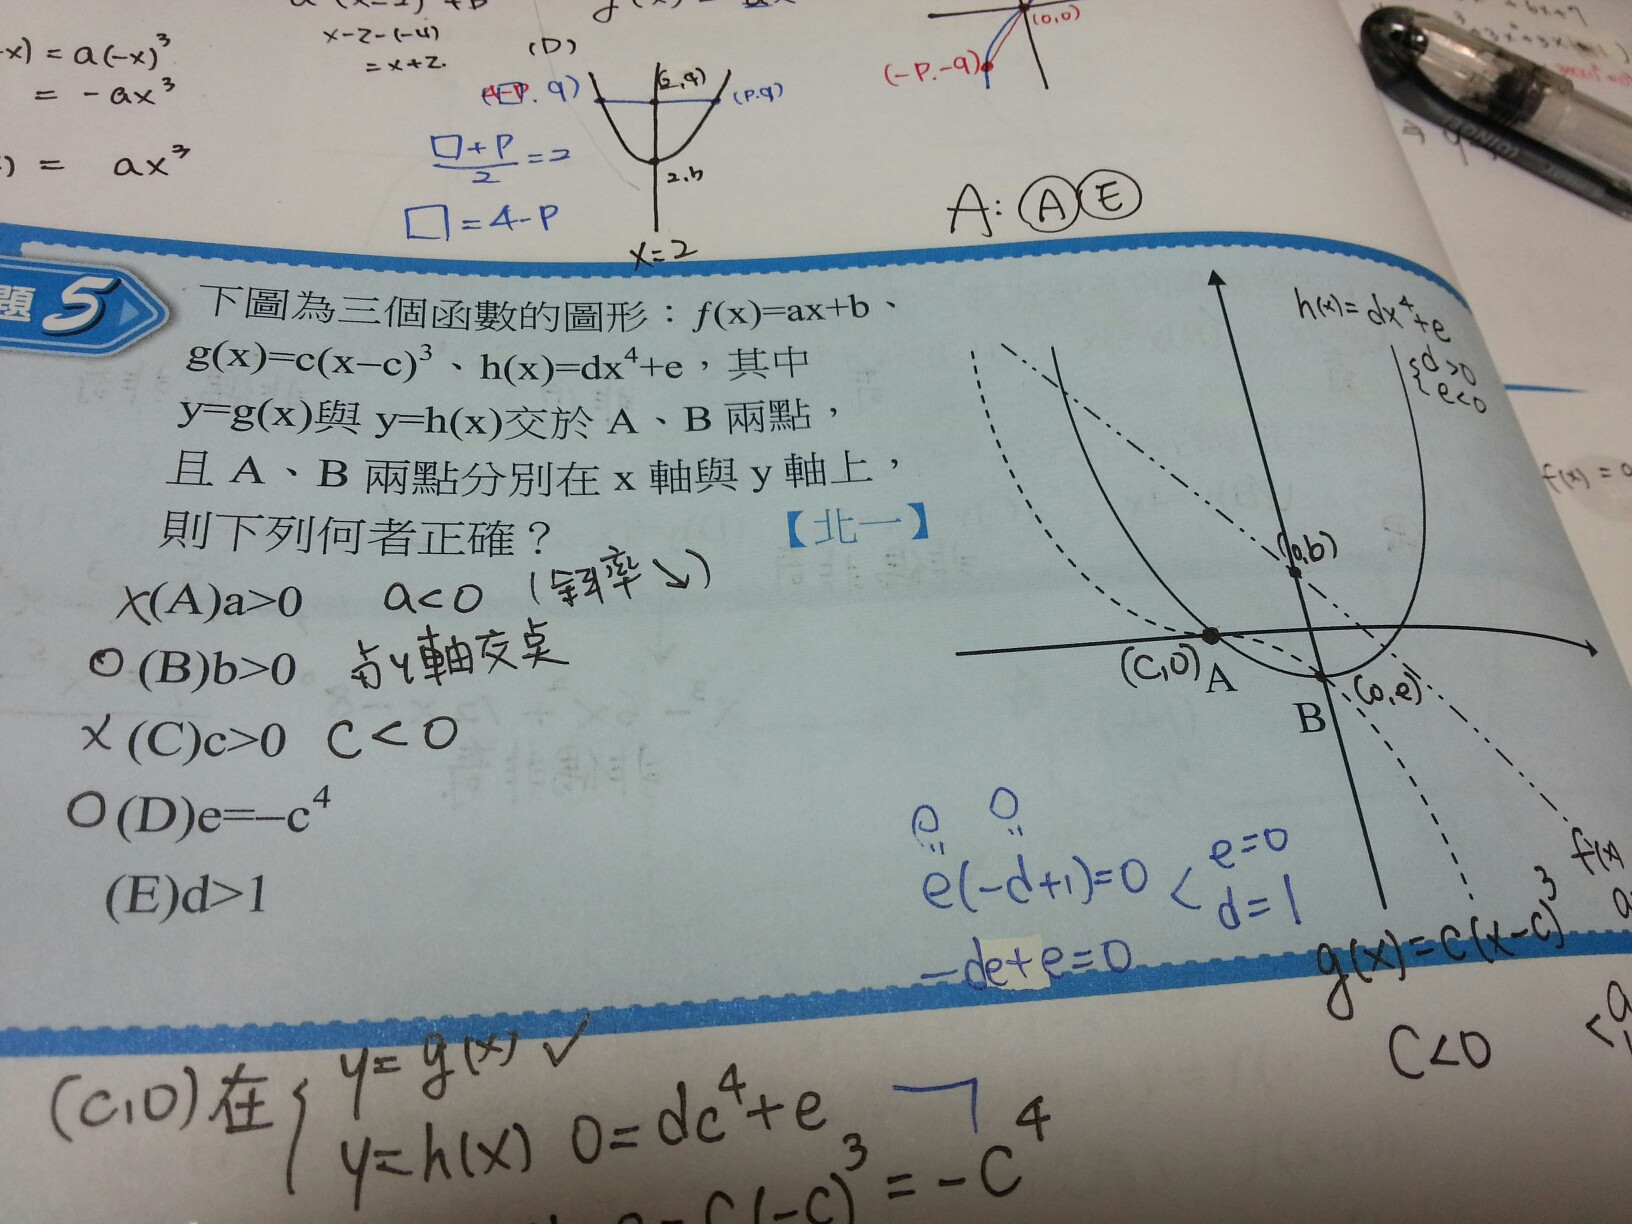 x-2-(-4)
= x+2.
-x) = a(-x)³
= -ax³
) = ax³
(D)
(4-P.q)
(2,q)
(P.q)
□+P/2=2
□=4-P
2,b
x=2
(0,0)
(-P.-q)
A: Ⓐ Ⓔ
題5
下圖為三個函數的圖形：f(x)=ax+b、
g(x)=c(x−c)³、h(x)=dx⁴+e，其中
y=g(x)與 y=h(x)交於 A、B 兩點，
且 A、B 兩點分別在 x 軸與 y 軸上，
則下列何者正確？ 【北一】
×(A)a>0 a<0 (斜率↘)
○(B)b>0 与y軸交点
×(C)c>0 c<0
○(D)e=−c⁴
(E)d>1
h(x)=dx⁴+e
{d>0
e<0
(0,b)
(c,0) A
B (0,e)
f(x)
e(-d+1)=0 < e=0
d=1
-de+e=0
g(x)=c(x-c)³
c<0
f(x) =
(c,0)在{ y=g(x) ✓
y=h(x) 0=dc⁴+e
c(-c)³=-c⁴